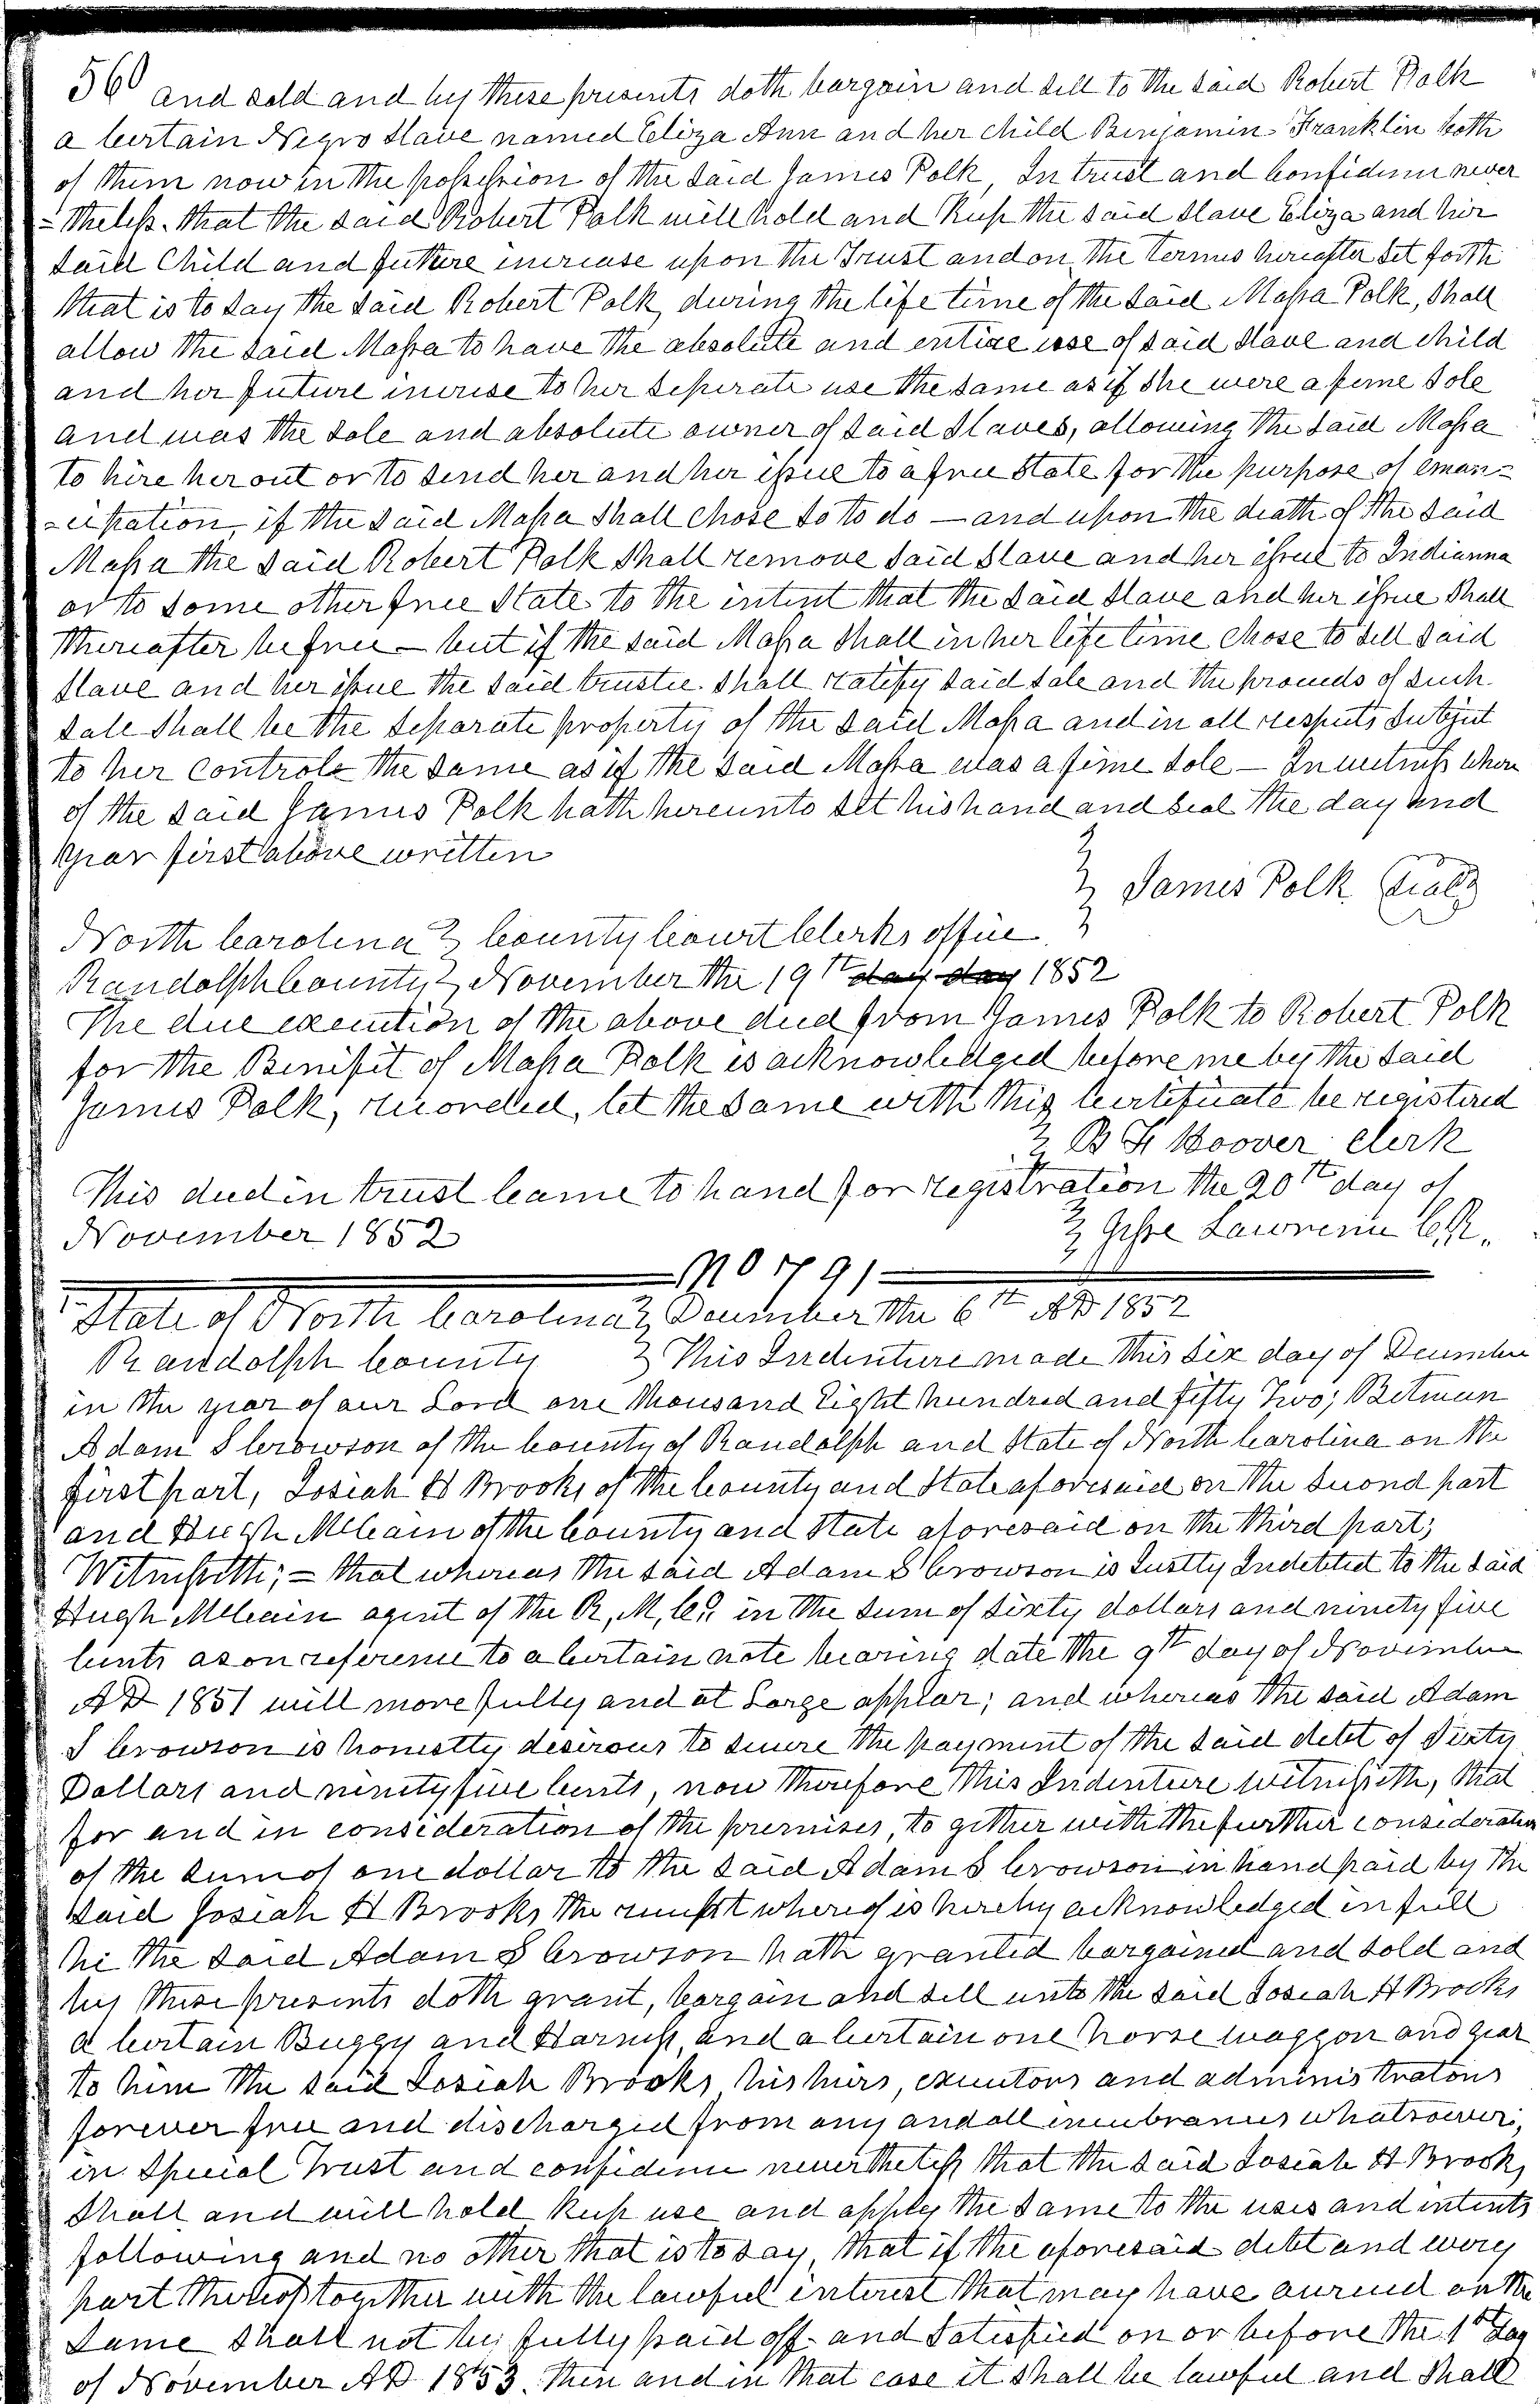 560 and sold and by these presents doth bargain and sell to the said Robert Polk
a certain Negro Slave named Eliza Ann and her child Benjamin Franklin both
of them now in the possession of the said James Polk, In trust and confidence never
= theless. that the said Robert Polk will hold and Keep the said Slave Eliza and her
said Child and future increase upon the Trust and on the terms hereafter set forth
that is to say the said Robert Polk, during the life time of the said Massa Polk, shall
allow the said Massa to have the absolute and entire use of said slave and child
and her future increse to her seperate use the same as if she were a feme sole
and was the sole and absolute owner of said slaves, allowing the said Massa
to hire her out or to send her and her issue to a free State for the purpose of eman=
=cipation, if the said Massa shall chose so to do — and upon the death of the said
Massa the said Robert Polk shall remove said slave and her issue to Indianna
or to some other free State to the intent that the said slave and her issue shall
thereafter be free — but if the said Massa shall in her life time chose to sell said
slave and her issue the said trustee shall ratify said sale and the proceeds of such
sale shall be the separate property of the said Massa and in all respects subject
to her controle the same as if the said Massa was a feme sole — In witness where
of the said James Polk hath hereunto set his hand and seal the day and
year first above written
James Polk (Seal)
North Carolina } County Court Clerks office
Randolph County } November the 19th day day 1852
The due execution of the above deed from James Polk to Robert Polk
for the Benifit of Massa Polk is acknowledged before me by the said
James Polk, recorded, let the same with this certificate be registered
B F Hoover clerk
This deed in trust came to hand for registration the 20th day of
November 1852 } Jesse Lawrence C.R.
No 791
State of North Carolina } December the 6th AD 1852
Randolph County } This Indenture made this six day of December
in the year of our Lord one thousand Eight hundred and fifty Two; Between
Adam S Crowson of the County of Randolph and State of North Carolina on the
first part, Josiah H Brooks of the County and State aforesaid on the second part
and Hugh McCain of the County and State aforesaid on the third part;
Witnesseth; = that whereas the said Adam S Crowson is Justly Indebted to the said
Hugh McCain agent of the R, M, Co in the sum of sixty dollars and ninety five
cents as on reference to a certain note bearing date the 9th day of November
AD 1851 will more fully and at Large appear; and whereas the said Adam
S Crowson is honestly desirous to secure the payment of the said debt of Sixty
Dollars and ninety five cents, now therefore this Indenture witnesseth, that
for and in consideration of the premises, to gether with the further consideration
of the sum of one dollar to the said Adam S Crowson in hand paid by the
said Josiah H Brooks the receipt whereof is hereby acknowledged in full
he the said Adam S Crowson hath granted bargained and sold and
by these presents doth grant, bargain and sell unto the said Josiah H Brooks
a certain Buggy and Harness, and a certain one horse waggon and gear
to him the said Josiah Brooks, his heirs, executors and administrators
forever free and discharged from any and all incumbrances whatsoever;
in Special Trust and confidence nevertheless that the said Josiah H Brooks
shall and will hold keep use and apply the same to the uses and intents
following and no other that is to say, that if the aforesaid debt and every
part thereof together with the lawful interest that may have accrued on the
same shall not be fully paid off and Satisfied on or before the 1st Day
of November AD 1853. then and in that case it shall be lawful and shall